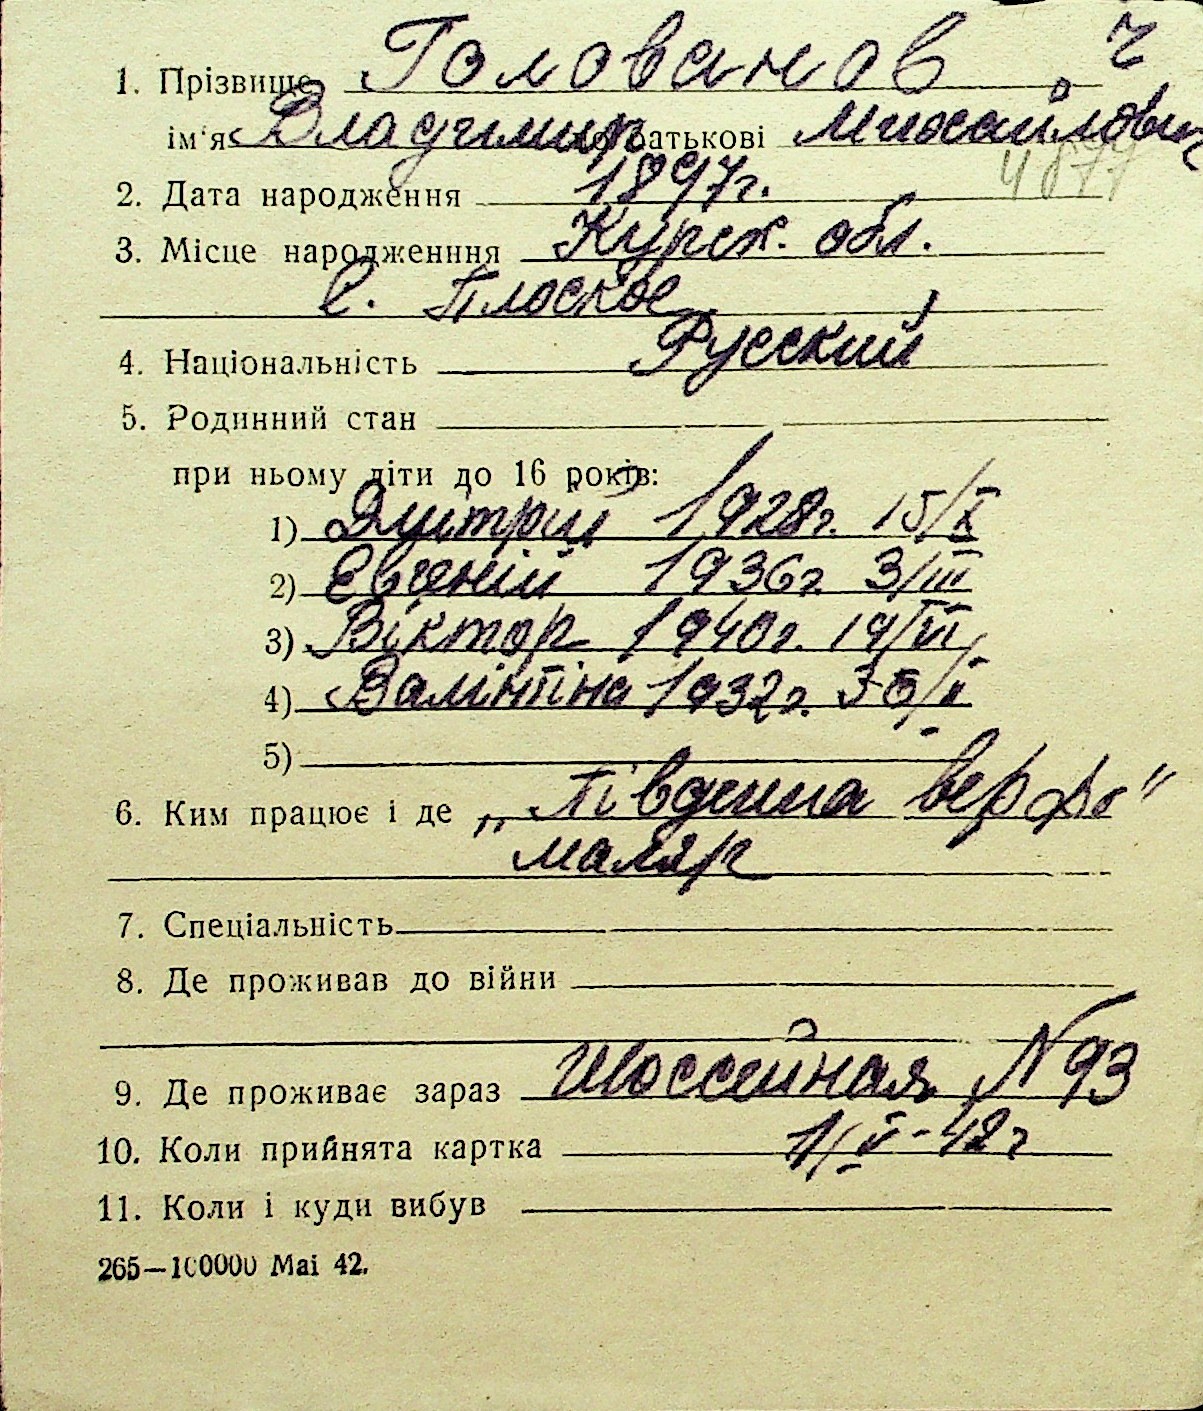 ч
1. Прізвище Голованов
ім'я Владимир по батькові Михайлович
4877
2. Дата народження 1897г.
3. Місце народженння Курск. обл.
с. Плоское
4. Національність Русский
5. Родинний стан
при ньому діти до 16 років:
1) Дмитрий 1928г. 15/X
2) Євгеній 1936г. 3/III
3) Віктор 1940г. 19/VII
4) Валінтіна 1932г. 30/V
5)
6. Ким працює і де „Південна верфь"
маляр
7. Спеціальність
8. Де проживав до війни
9. Де проживає зараз Шоссейная N 93
10. Коли прийнята картка 1/V-42г
11. Коли і куди вибув
265—100000 Mai 42.